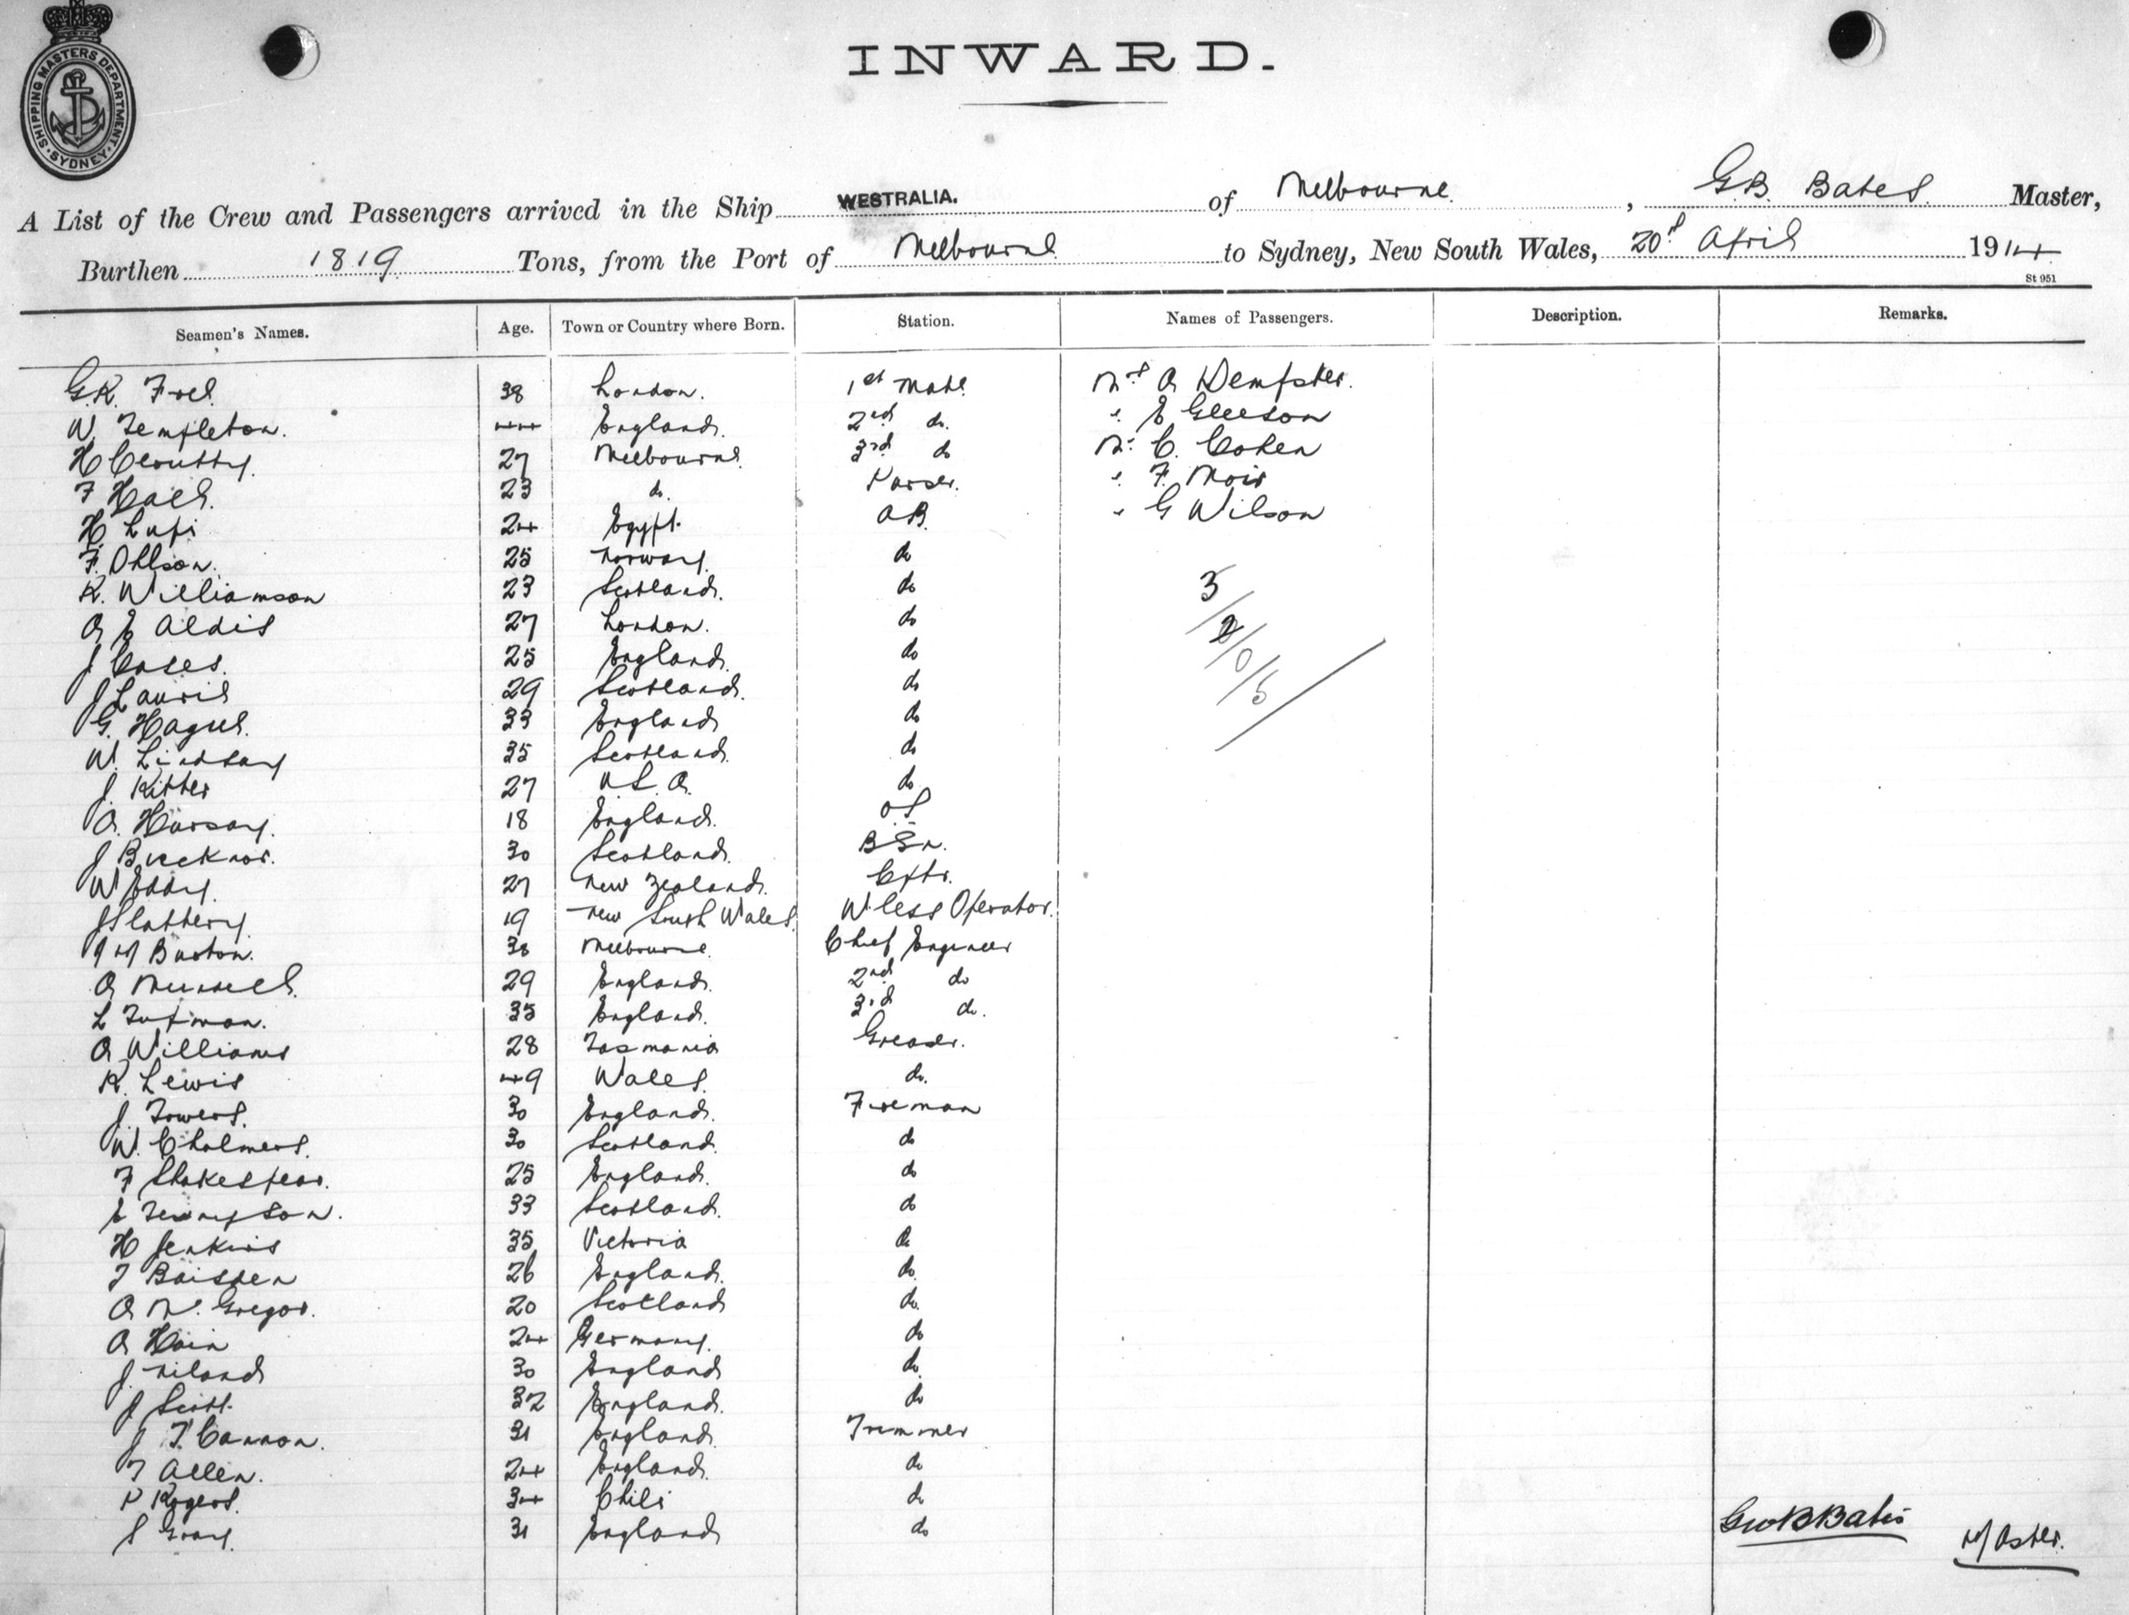 SHIPPING MASTERS DEPARTMENT
SYDNEY
INWARD.
A List of the Crew and Passengers arrived in the Ship WESTRALIA. of Melbourne, G.B. Bates Master,
Burthen 1819 Tons, from the Port of Melbourne to Sydney, New South Wales, 20th April 1914
St 951
Seamen's Names. Age. Town or Country where Born. Station. Names of Passengers. Description. Remarks.
G.R. 38 London. 1st Mate Mrs A Dempster.
W. Templeton. 44 England. 2nd do. " E Gleeson
H 27 Melbourne 3rd do Mr C. Cohen
F Hall. 23 do. Purser. " F. Moir
H. 24 Egypt. AB. " G Wilson
F. Ohlson. 25 Norway. do
R. Williamson 23 Scotland. do 3/2/0/5
A E Aldis 27 London. do
J Cases. 25 England. do
J Lauris 29 Scotland. do
G. Hague. 33 England do
W. Lindsay 35 Scotland do
J. Ritter 27 U.S.A. do
A. 18 England. OS
J Bucknor. 30 Scotland. BSn.
W Eddy. 27 New Zealand. Cptr.
J Slattery. 19 New South Wales. W.less Operator.
Burton. 38 Melbourne Chief Engineer
A 29 England. 2nd do
L Tutman. 35 England. 3rd do.
A Williams 28 Tasmania Greaser.
R. Lewis 49 Wales. do.
J. Towers. 30 England. Fireman
W. Chalmers. 30 Scotland. do
F Shakespear. 25 England. do
E Tennyson. 33 Scotland. do
H Jenkins 35 Victoria do
T Baisden 26 England. do.
A Mc Gregor. 20 Scotland do.
A Hain 24 Germany. do
J. Niland 30 England do.
J Scott. 32 England. do
J T. Cannon. 31 England. Trimmer
T Allen. 24 England. do
P Rogers. 34 Chili do
S Gray. 31 England do
Geo B Bates Master.